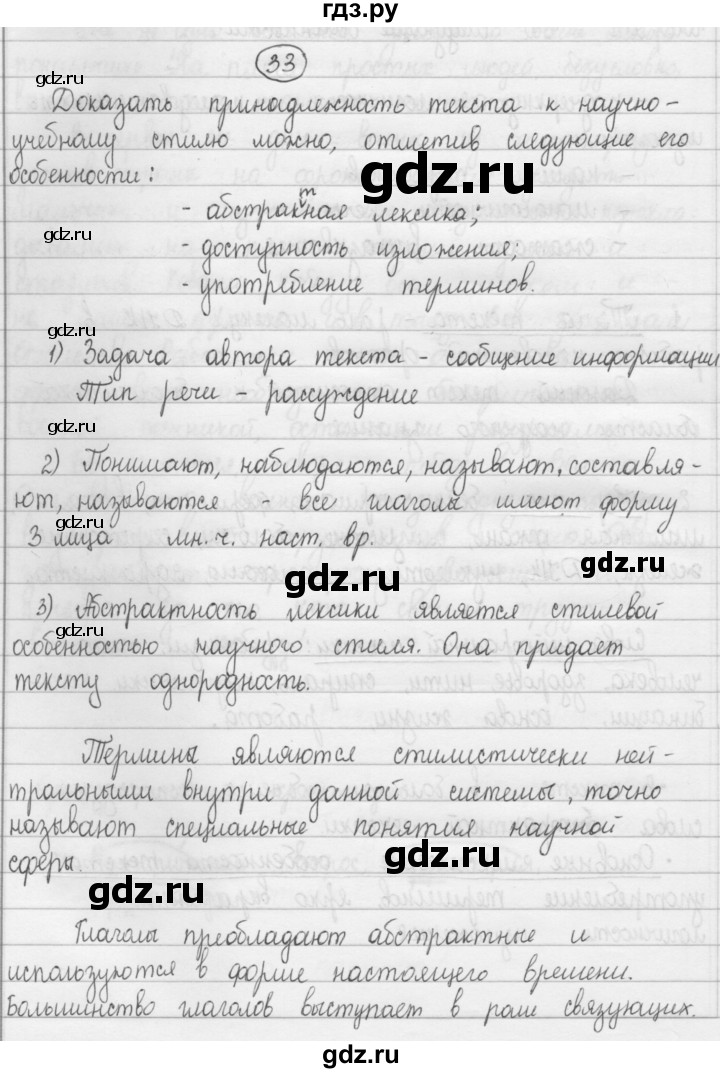 гдз.ру
33
gdz.ru
Доказать принадлежность текста к научно-
учебному стилю можно, отметив следующие его
особенности:
gdz.ru
т
- абстракная лексика;
gdz.ru
- доступность изложения;
- употребление терминов.
gdz.ru
1) Задача автора текста - сообщение информации
Тип речи - рассуждение
gdz.ru
2) Понимают, наблюдаются, называют, составля-
ют, называются - все глаголы имеют форму
gdz.ru
3 лица мн.ч. наст. вр.
gdz.ru
gdz.ru
3) Абстрактность лексики является стилевой
gdz.ru
особенностью научного стиля. Она придает
тексту однородность.
gdz.ru
Термины являются стилистически ней-
тральными внутри данной системы, точно
называют специальные понятия научной
gdz.ru
сферы.
gdz.ru
Глаголы преобладают абстрактные и
gdz.ru
используются в форме настоящего времени.
Большинство глаголов выступает в роли связующих.
gdz.ru